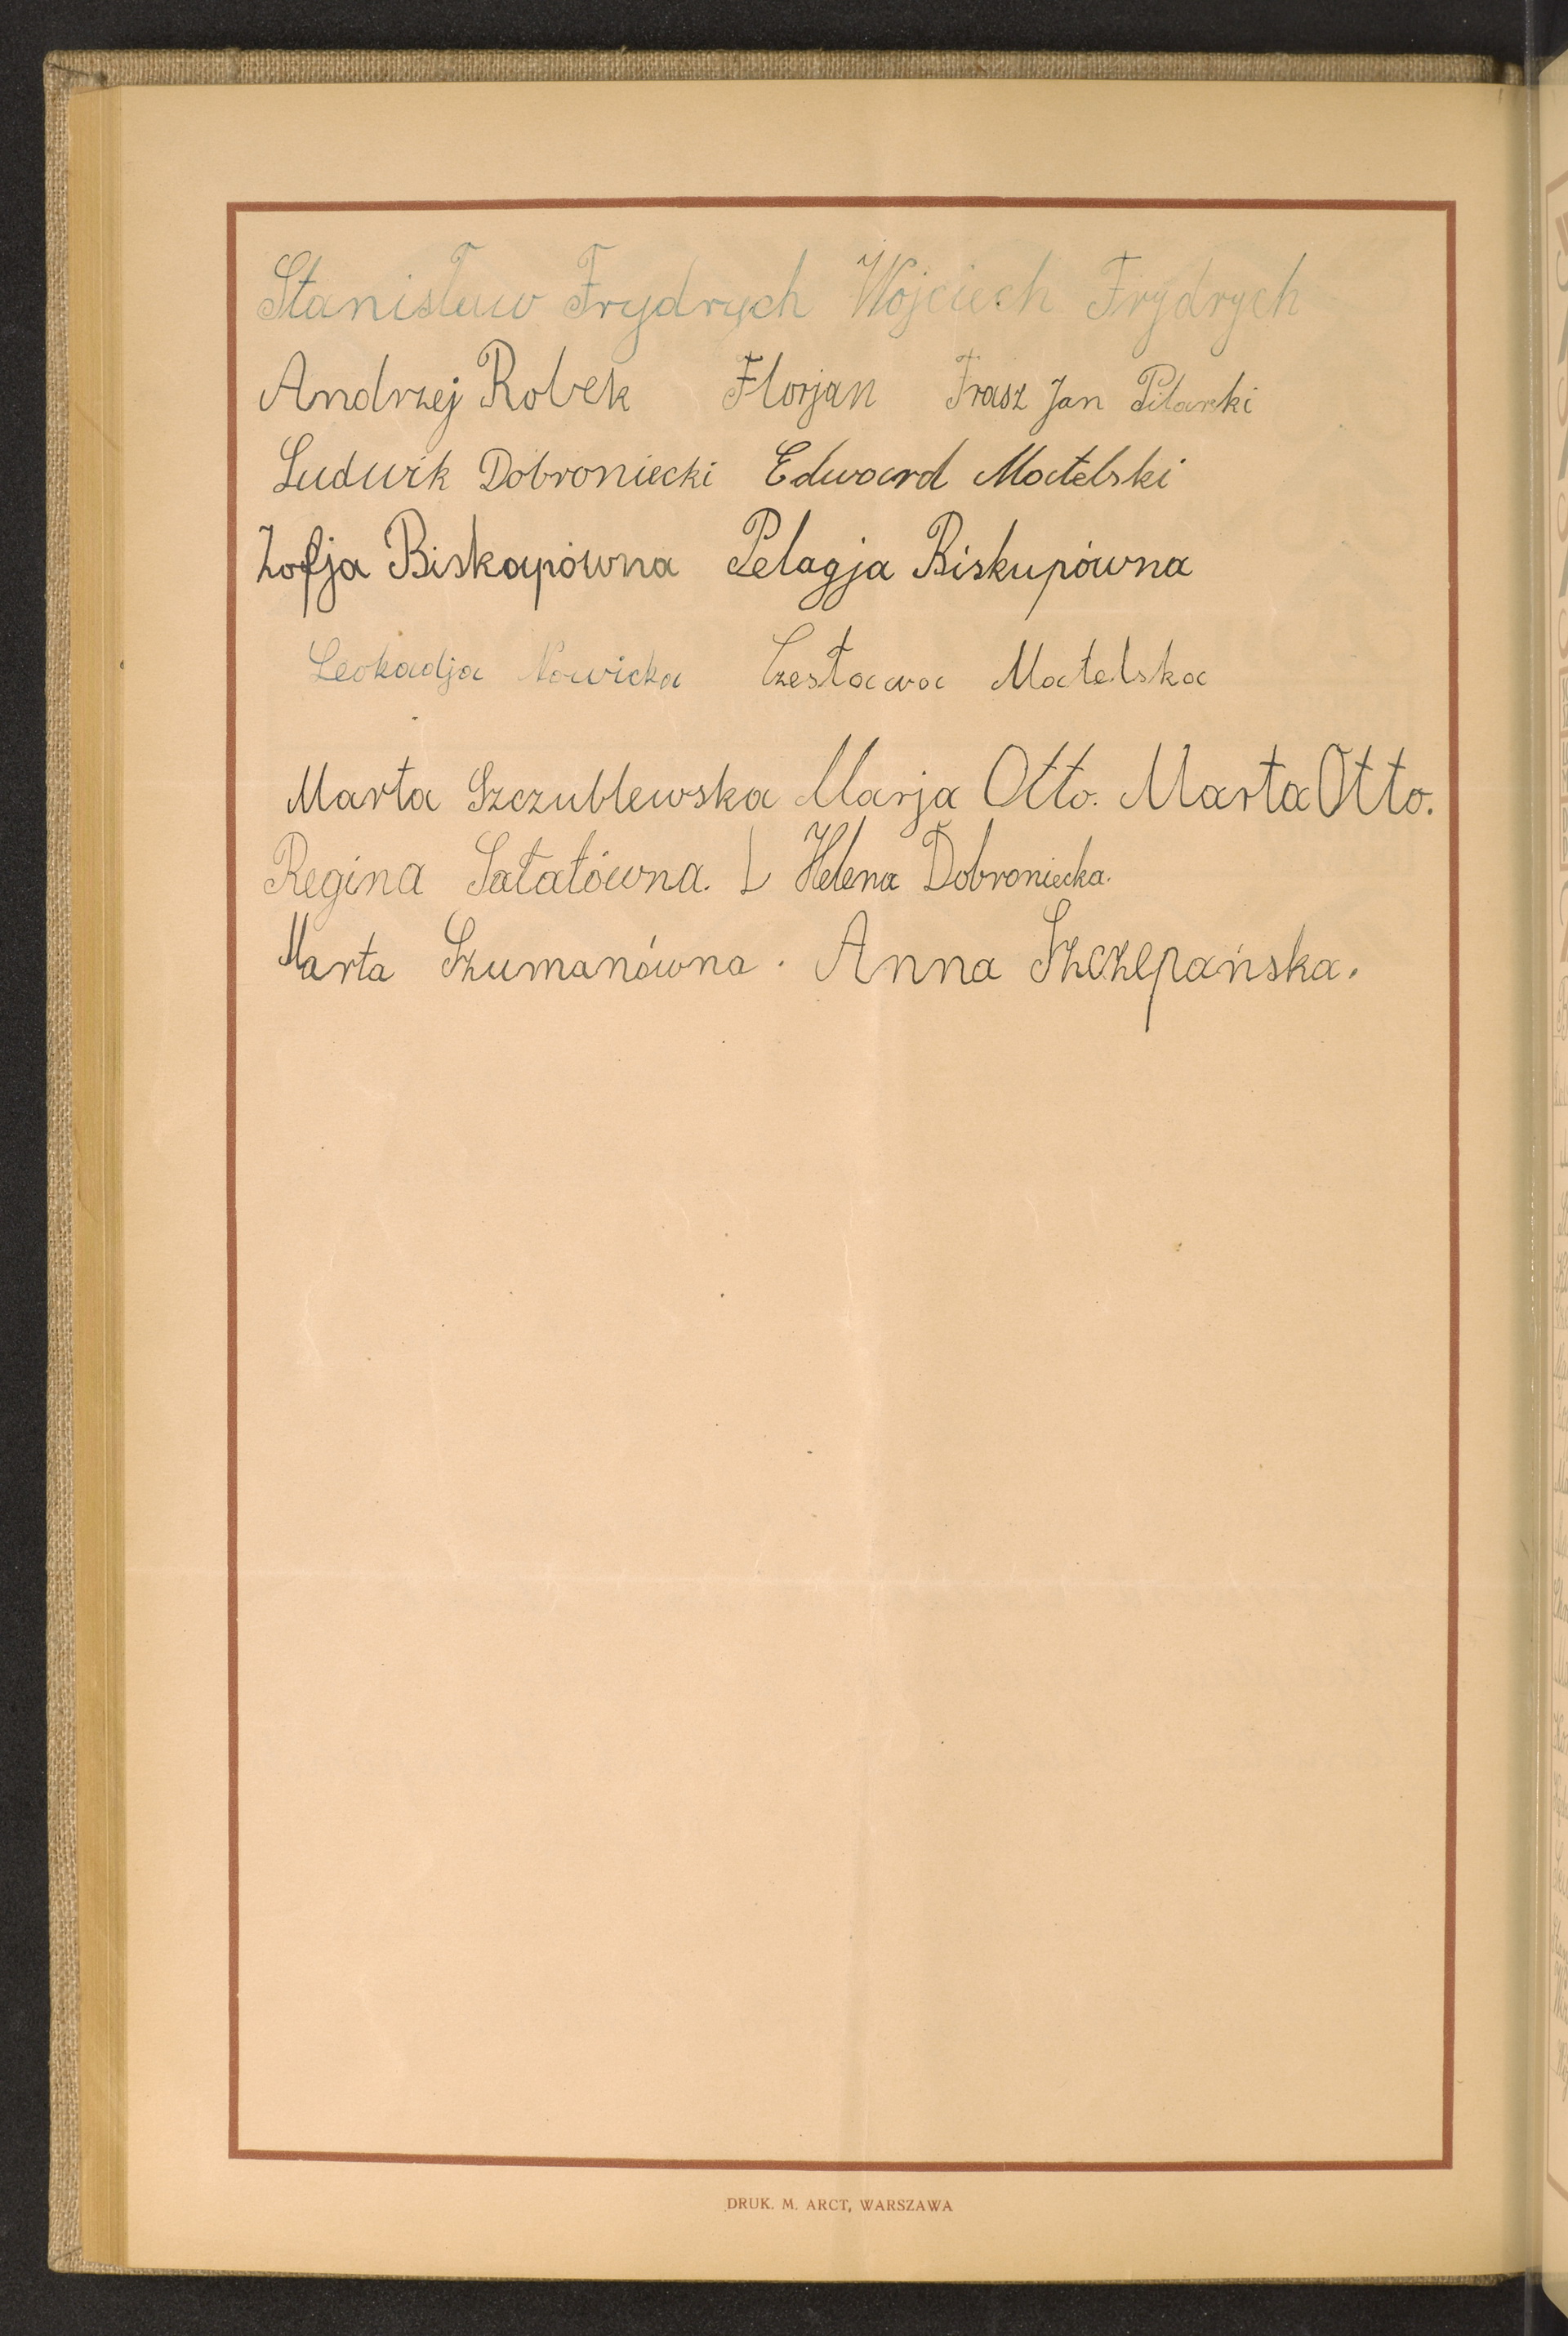 Stanisław Frydrych Wojciech Frydrych
Andrzej Robek Florjan Frasz Jan Pilarski
Ludwik Dobroniecki Edward Matelski
Zofja Biskupówna Pelagja Biskupówna
Leokadja Nowicka Czesława Matelska
Marta Szczublewska Marja Otto. Marta Otto.
Regina Sałatówna. L Helena Dobroniecka.
Marta Szumanówna. Anna Szczepańska.
DRUK. M. ARCT, WARSZAWA